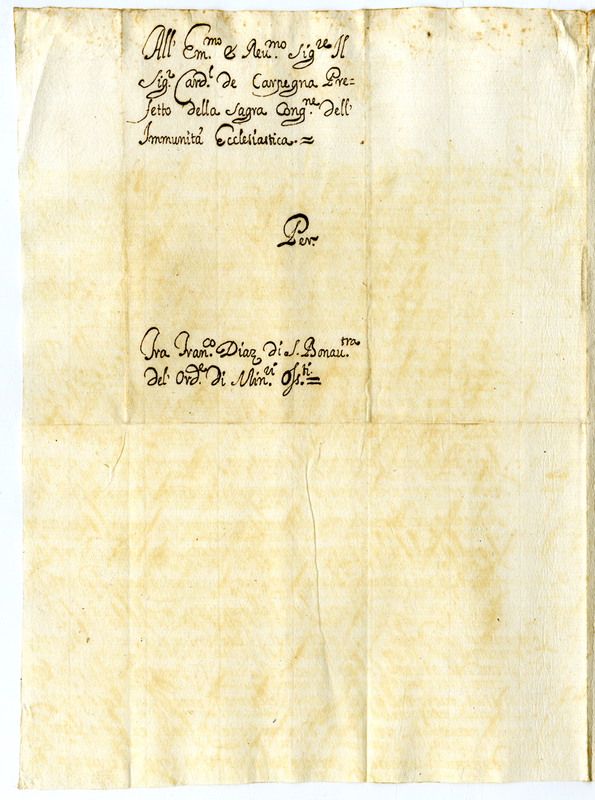 All' Em.mo & Reu.mo Sig.re Il
Sig.r Card.l de Carpegna Pre=
fetto della Sagra Cong.ne dell'
Immunità Ecclesiastica.=
Per.
Fra Fran.co Diaz di S. Bonau.tra
del Ord.e di Min.ri Oss.ti=